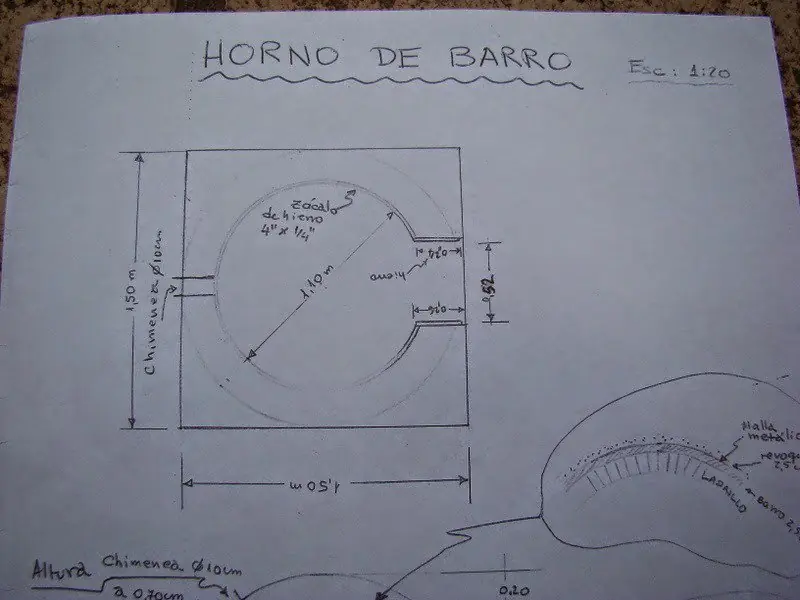 HORNO DE BARRO
Esc: 1:20
Zócalo
de hierro
4" x 1/4"
1,10 m
1,50 m
Chimenea Ø10cm
hierro
0,52
1,50 m
Malla
metálic
revoqu
2,5c
Barro 2,5
LADRILLO
Altura Chimenea Ø10cm
a 0.70cm
0.20